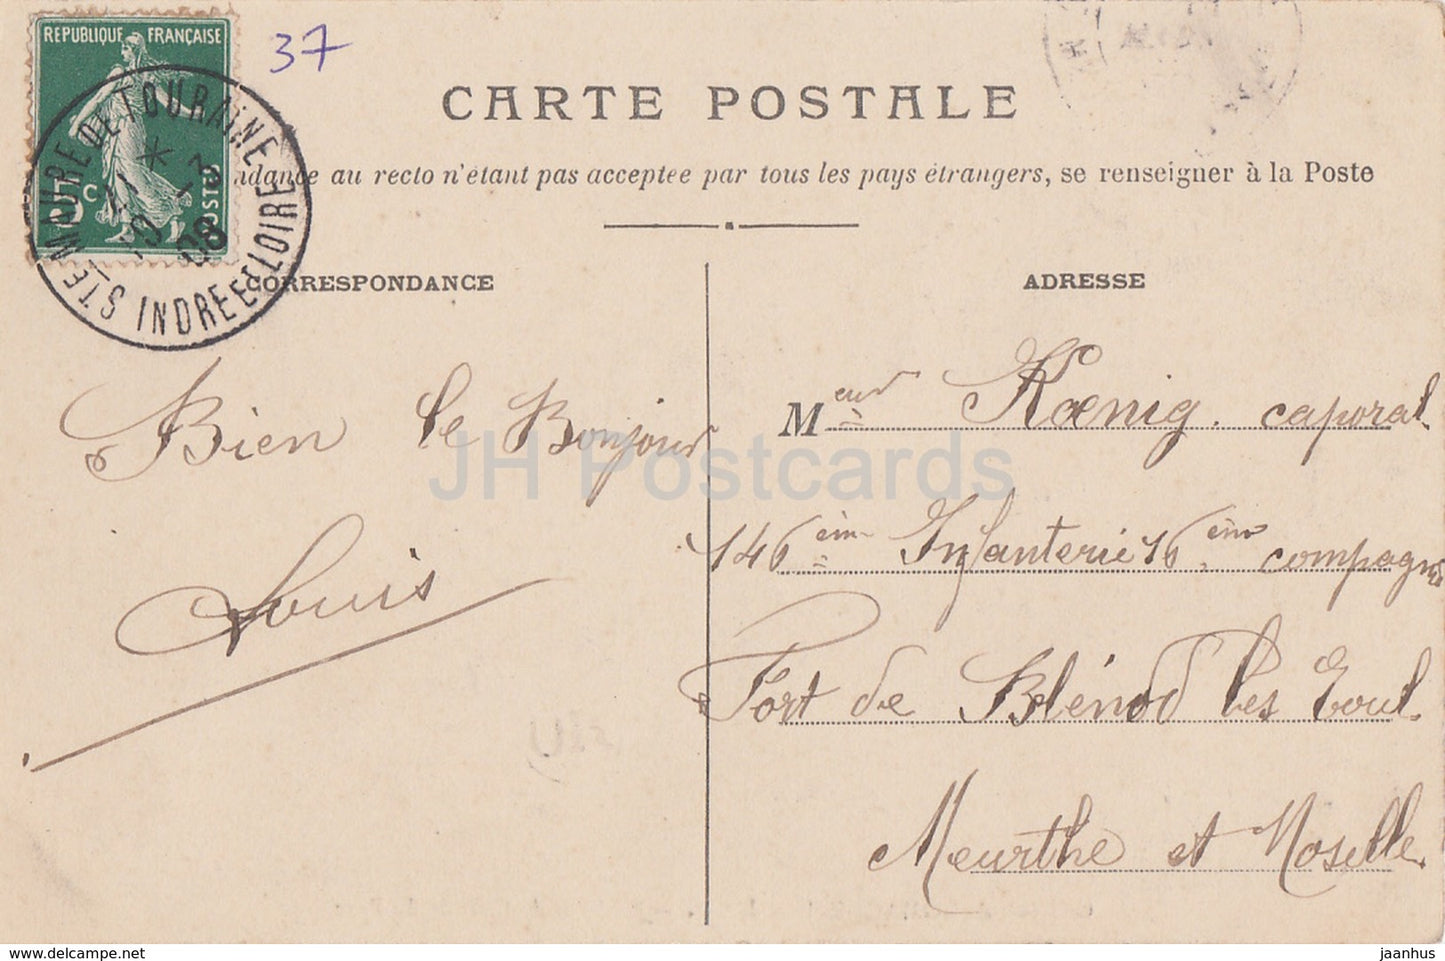 REPUBLIQUE FRANÇAISE
5c
POSTES
STE MAURE DE TOURAINE
11 * -3
10 08
INDRE ET LOIRE
37
CARTE POSTALE
ndance au recto n'étant pas acceptée par tous les pays étrangers, se renseigner à la Poste
CORRESPONDANCE
ADRESSE
Bien le Bonjour
Louis
Meur Kœnig. caporal.
146ème Infanterie 16ème compagnie
Fort de Blénod les Toul.
Meurthe et Moselle.
JH Postcards
https://www.delcampe.net
jaanhus